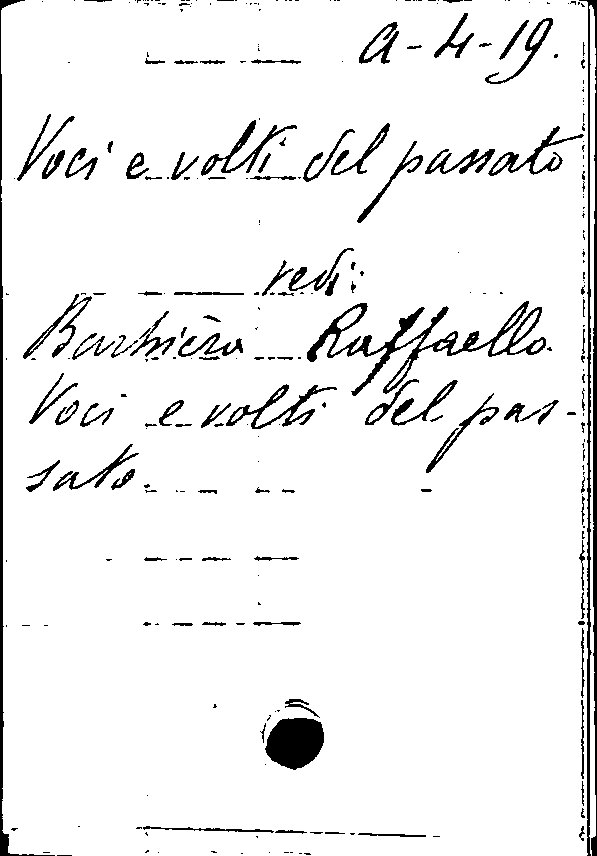 a-4-19.
Voci e volti del passato
vedi:
Barbièra Raffaello.
Voci e volti del pas-
sato.